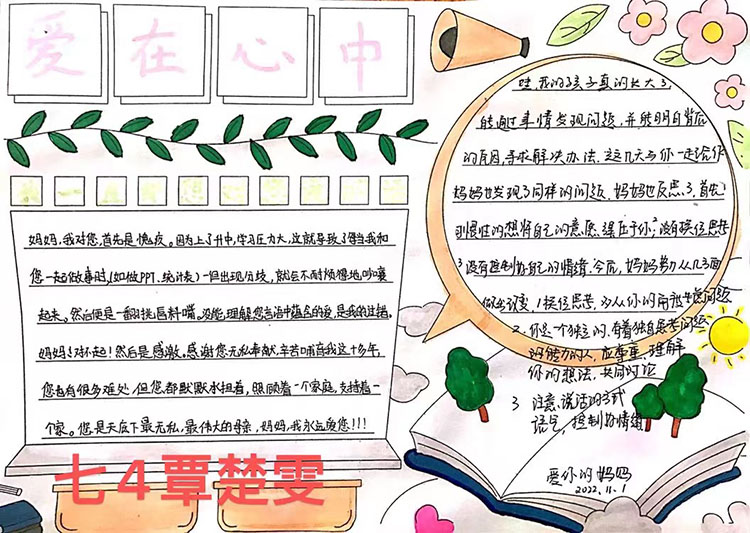 爱在心中
妈妈,我对您,首先是愧疚。因为上了初中,学习压力大,这就导致了每当我和
您一起做事时,(如做PPT、统计表)一但出现分歧,就会不耐烦狠地,嘟囔
起来。然后便是一番挑唇料嘴。没能理解您言语中蕴含的爱,是我的过错。
妈妈:对不起!然后是感激,感谢您无私奉献,辛苦哺育我这十多年,
您也有很多难处,但您都默默承担着,照顾着一个家庭,支持着一
个家。您是天底下最无私,最伟大的母亲,妈妈,我永远爱您!!!
哇,我的孩子真的长大了,
能通过事情发现问题,并能明白背后
的原因,寻求解决办法。这几天与你一起
妈妈也发现了同样的问题,妈妈也反思了,首先1
习惯性的想将自己的意愿强压于你,2没有换位思考
3没有控制好自己的情绪。今后,妈妈努力从几方面
做出改变,1换位思考,多从你的角度考虑问题
2、你是个独立的,有着独自思考问题
的能力的人,应尊重、理解
你的想法,共同讨论
3 注意说话的方式
语气,控制好情绪
爱你的妈妈
2022.11.1
七4覃楚雯